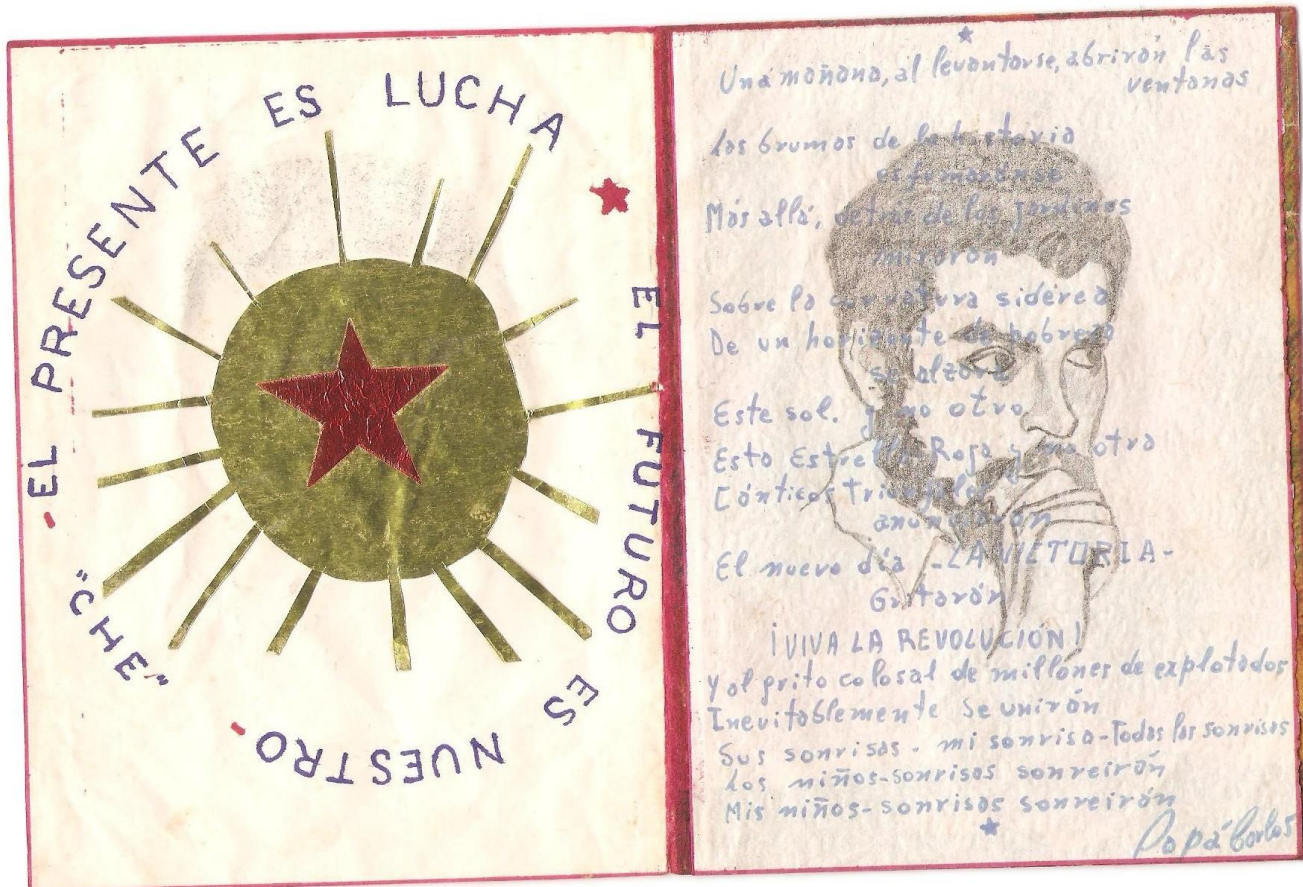 -EL PRESENTE ES LUCHA
EL FUTURO ES NUESTRO-
"CHE"
Una mañana, al levantarse, abrirán las
ventanas
Las brumas de la historia
esfumaránse
Más allá, detrás de los jardines
mirarán
Sobre la curvatura sidérea
De un horizonte de pobreza
se alzará
Este sol. y no otro
Esta Estrella Roja y no otra
Cánticos Triunfales
anunciarán
El nuevo día -LA VICTORIA-
Gritarán
¡VIVA LA REVOLUCION!
y al grito colosal de millones de explotados
Inevitablemente se unirán
Sus sonrisas - mi sonrisa - Todas las sonrisas
Los niños-sonrisas sonreirán
Mis niños-sonrisas sonreirán
Papá Carlos